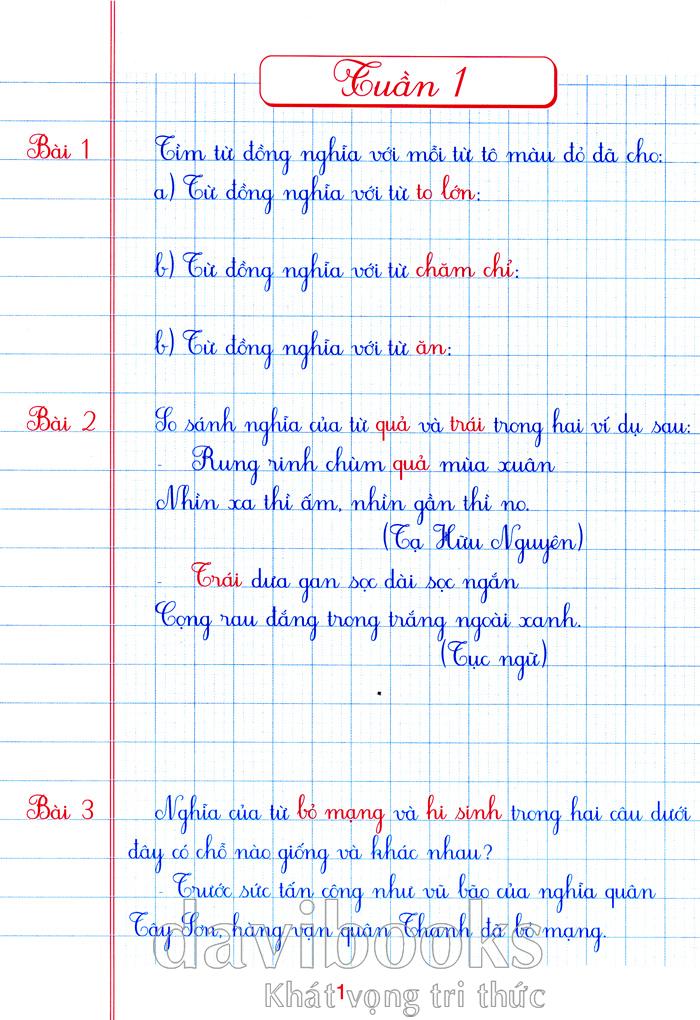 Tuần 1
Bài 1 Tìm từ đồng nghĩa với mỗi từ tô màu đỏ đã cho:
a) Từ đồng nghĩa với từ to lớn:
b) Từ đồng nghĩa với từ chăm chỉ:
b) Từ đồng nghĩa với từ ăn:
Bài 2 So sánh nghĩa của từ quả và trái trong hai ví dụ sau:
- Rung rinh chùm quả mùa xuân
Nhìn xa thì ấm, nhìn gần thì no.
(Tạ Hữu Nguyên)
- Trái dưa gan sọc dài sọc ngắn
Cọng rau đắng trong trắng ngoài xanh.
(Tục ngữ)
Bài 3 Nghĩa của từ bỏ mạng và hi sinh trong hai câu dưới
đây có chỗ nào giống và khác nhau?
- Trước sức tấn công như vũ bão của nghĩa quân
Tây Sơn, hàng vạn quân Thanh đã bỏ mạng.
davibooks
Khát vọng tri thức
1